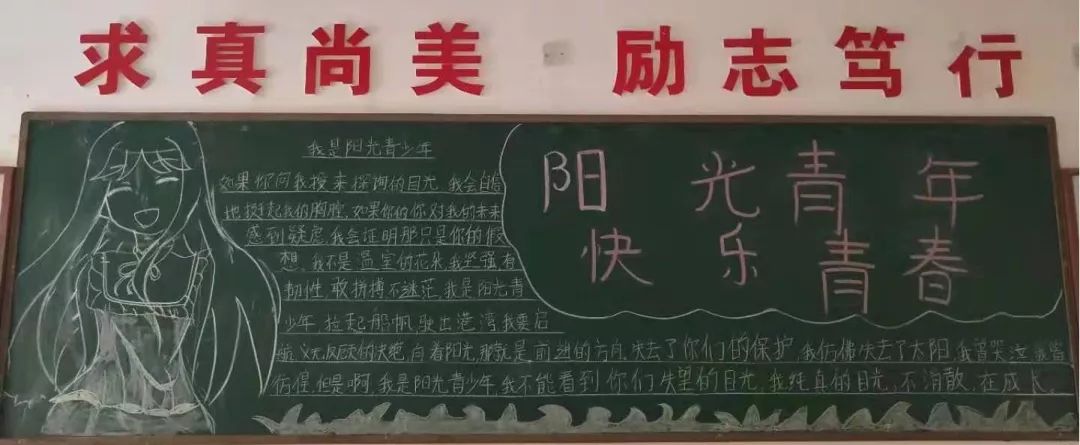 求真尚美 励志笃行
我是阳光青少年
如果你向我投来探询的目光,我会自信
地挺起我的胸膛,如果你的你对我的未来
感到疑虑,我会证明那只是你的假
想,我不是温室的花朵,我坚强有
韧性敢拼搏不迷茫,我是阳光青
少年,拉起船帆,驶出港湾,我要启
航义无反顾的决绝,向着阳光,那就是前进的方向,失去了你们的保护,我仿佛失去了太阳,我曾哭泣,我曾
彷徨,但是啊,我是阳光青少年,我不能看到你们失望的目光,我纯真的目光,不消散,在成长
阳光青年
快乐青春